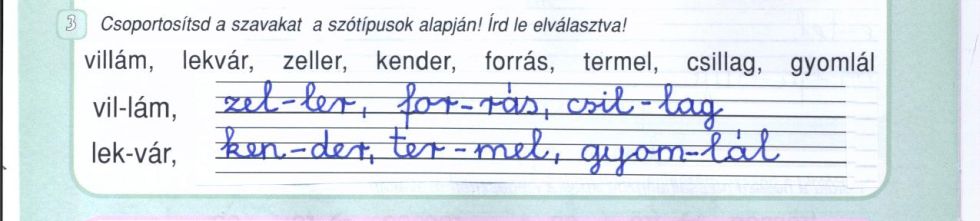 3 Csoportosítsd a szavakat a szótípusok alapján! Írd le elválasztva!
villám, lekvár, zeller, kender, forrás, termel, csillag, gyomlál
vil-lám, zel-ler, for-rás, csil-lag
lek-vár, ken-der, ter-mel, gyom-lál